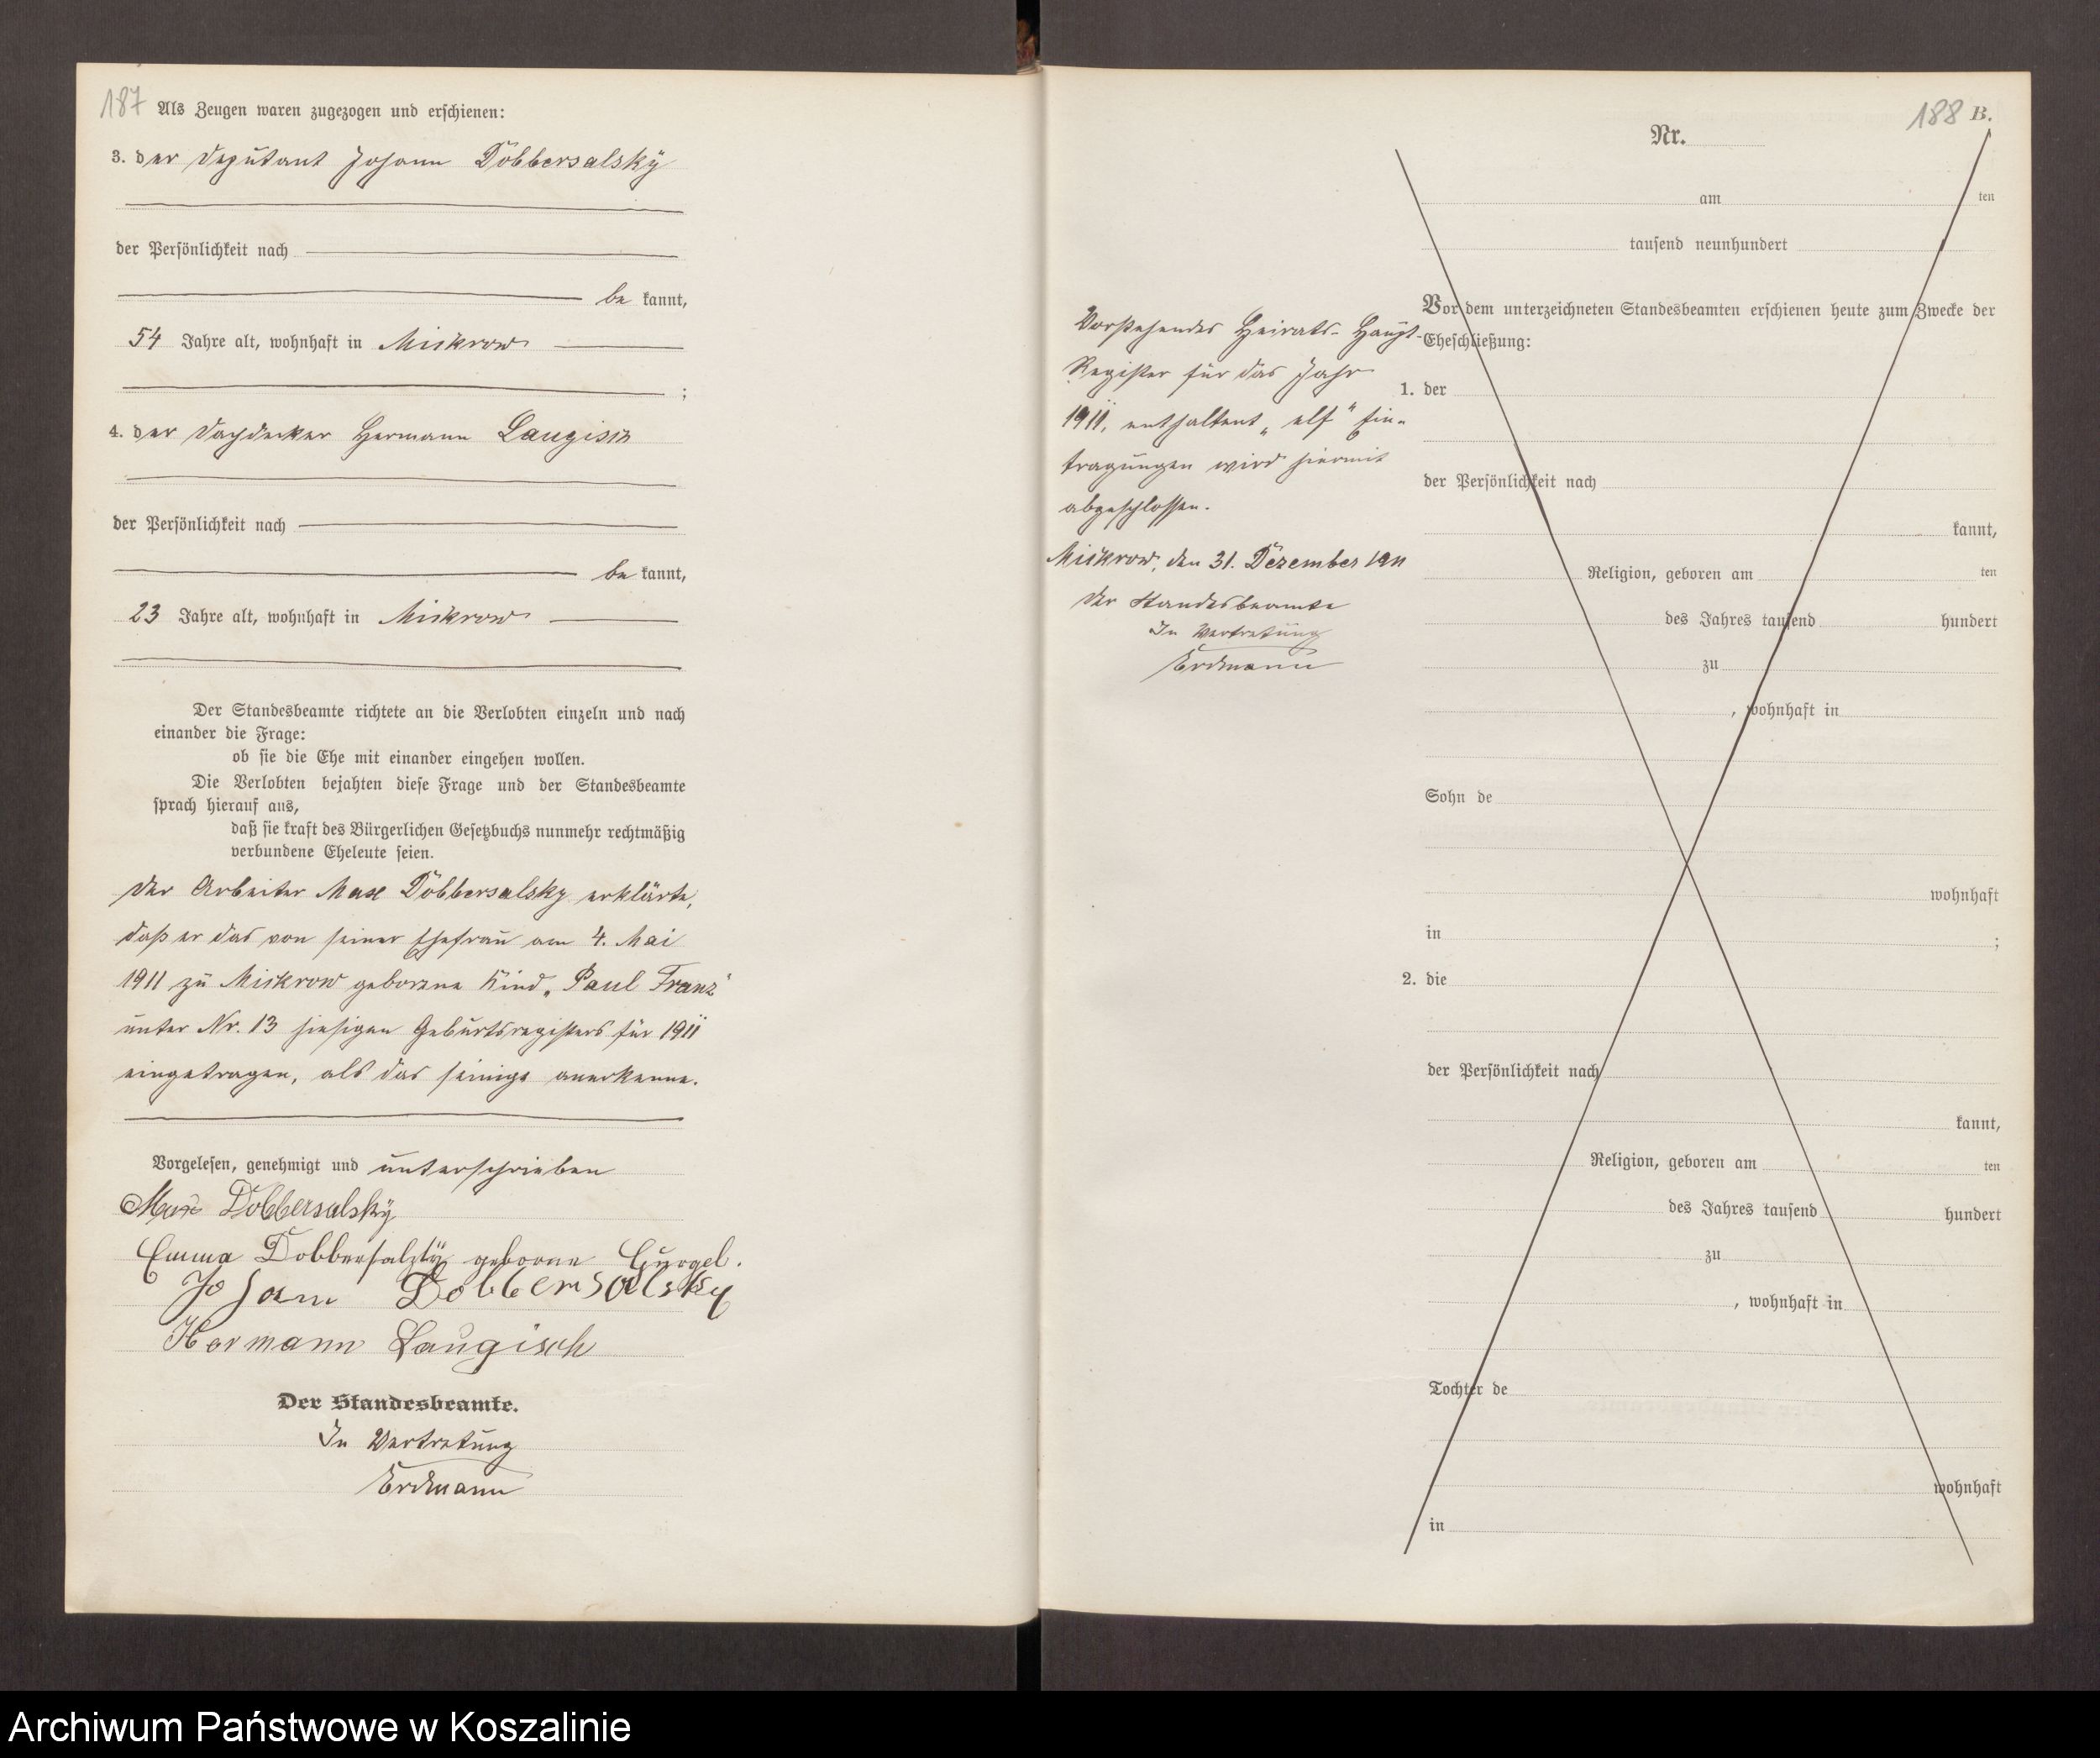 187
Als Zeugen waren zugezogen und erschienen:
3. der Deputant Johann Dobbersalsky
der Persönlichkeit nach
be kannt,
54 Jahre alt, wohnhaft in Mickrow
;
4. der Dachdecker Hermann Laugisch
der Persönlichkeit nach
be kannt,
23 Jahre alt, wohnhaft in Mickrow
Der Standesbeamte richtete an die Verlobten einzeln und nach
einander die Frage:
ob sie die Ehe mit einander eingehen wollen.
Die Verlobten bejahten diese Frage und der Standesbeamte
sprach hierauf aus,
daß sie kraft des Bürgerlichen Gesetzbuchs nunmehr rechtmäßig
verbundene Eheleute seien.
Der Arbeiter Max Dobbersalsky erklärte,
daß er das von seiner Ehefrau am 4. Mai
1911 zu Mickrow geborene Kind „Paul Franz"
unter Nr. 13 hiesigen Geburtsregisters für 1911
eingetragen, als das seinige anerkenne.
Vorgelesen, genehmigt und unterschrieben
Max Dobbersalsky
Emma Dobbersalzky geborne Gurgel.
Johann Dobbersalsky
Hermann Laugisch
Der Standesbeamte.
In Vertretung
Erdmann
188 B.
Nr.
am ten
tausend neunhundert
Vor dem unterzeichneten Standesbeamten erschienen heute zum Zwecke der
Eheschließung:
1. der
der Persönlichkeit nach
kannt,
Religion, geboren am ten
des Jahres tausend hundert
zu
, wohnhaft in
Sohn de
wohnhaft
in ;
2. die
der Persönlichkeit nach
kannt,
Religion, geboren am ten
des Jahres tausend hundert
zu
, wohnhaft in
Tochter de
wohnhaft
in
Vorstehendes Heirats-Haupt-
Register für das Jahr
1911, enthaltent „elf" Ein-
tragungen wird hiermit
abgeschlossen.
Mickrow, den 31. Dezember 1911
Der Standesbeamte
In Vertretung
Erdmann
Archiwum Państwowe w Koszalinie